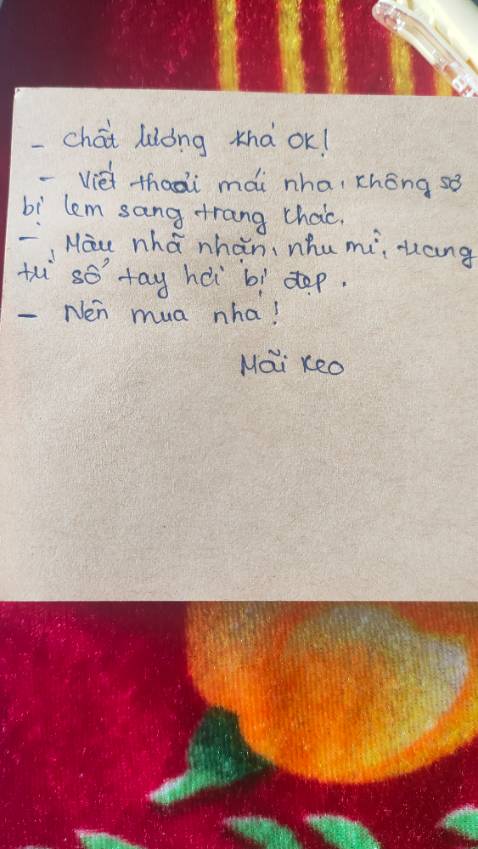 - Chất lượng khá OK!
- Viết thoải mái nha, không sợ
bị lem sang trang khác.
- Màu nhã nhặn, nhu mì, trang
trí sổ tay hơi bị đẹp.
- Nên mua nhá!
Mãi keo